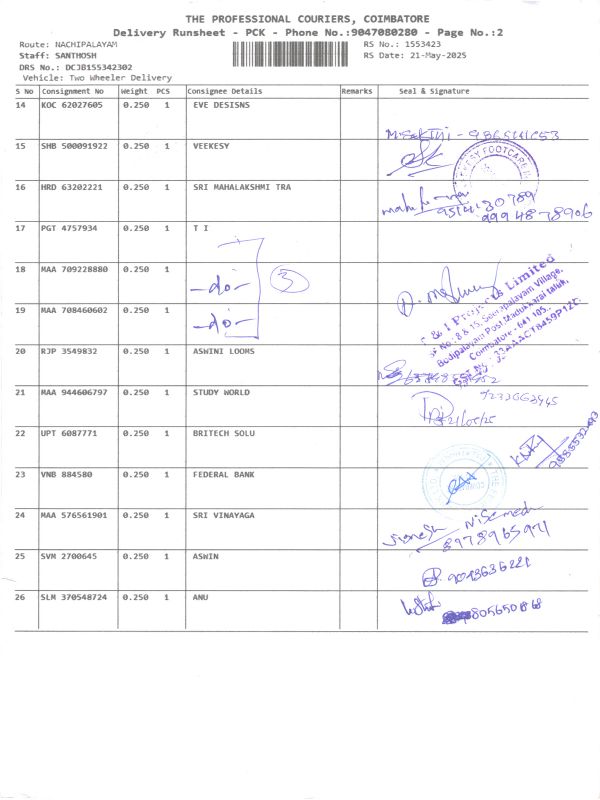 THE PROFESSIONAL COURIERS, COIMBATORE
Delivery Runsheet - PCK - Phone No.:9047080280 - Page No.:2
Route: NACHIPALAYAM RS No.: 1553423
Staff: SANTHOSH RS Date: 21-May-2025
DRS No.: DCJB155342302
Vehicle: Two Wheeler Delivery
S No Consignment No Weight PCS Consignee Details Remarks Seal & Signature
14 KOC 62027605 0.250 1 EVE DESISNS
15 SHB 500091922 0.250 1 VEEKESY
16 HRD 63202221 0.250 1 SRI MAHALAKSHMI TRA
9994878906
17 PGT 4757934 0.250 1 T I
18 MAA 709228880 0.250 1 -do- 3
19 MAA 708460602 0.250 1 -do-
Coimbatore - 641 105.
20 RJP 3549832 0.250 1 ASWINI LOOMS
21 MAA 944606797 0.250 1 STUDY WORLD
21/05/25
22 UPT 6087771 0.250 1 BRITECH SOLU
23 VNB 884580 0.250 1 FEDERAL BANK
24 MAA 576561901 0.250 1 SRI VINAYAGA
8978965971
25 SVM 2700645 0.250 1 ASWIN
9043636221
26 SLM 370548724 0.250 1 ANU